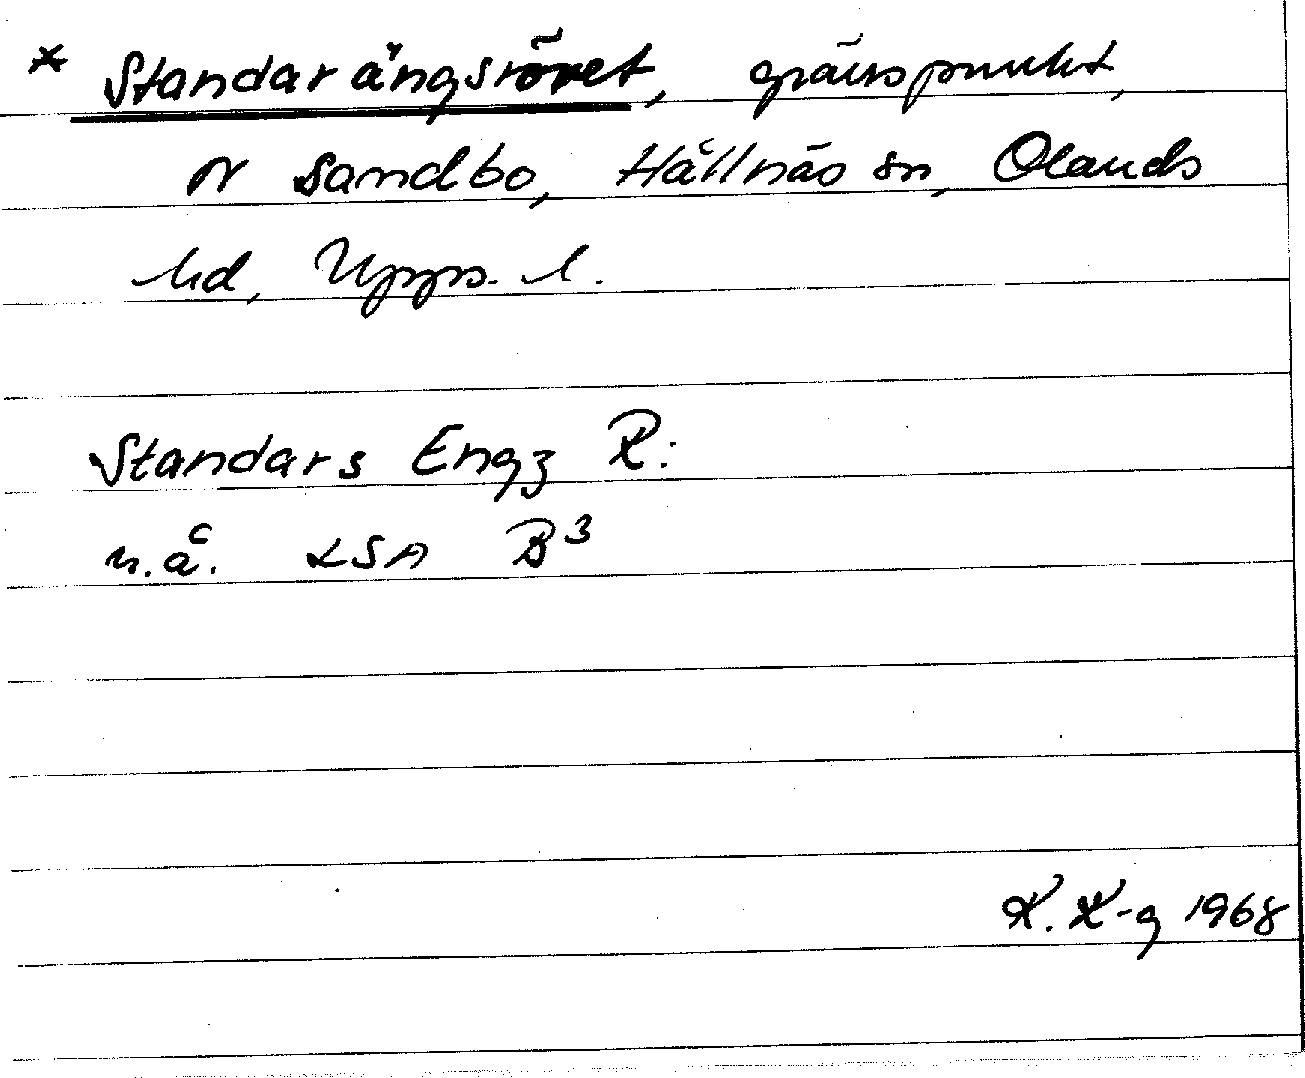 * Standarängsröret, gränspunkt,
N Sandbo, Hållnäs sn, Olands
hd, Upps. l.
Standars Engz R:
n.å. LSA B3
K. K-g 1968